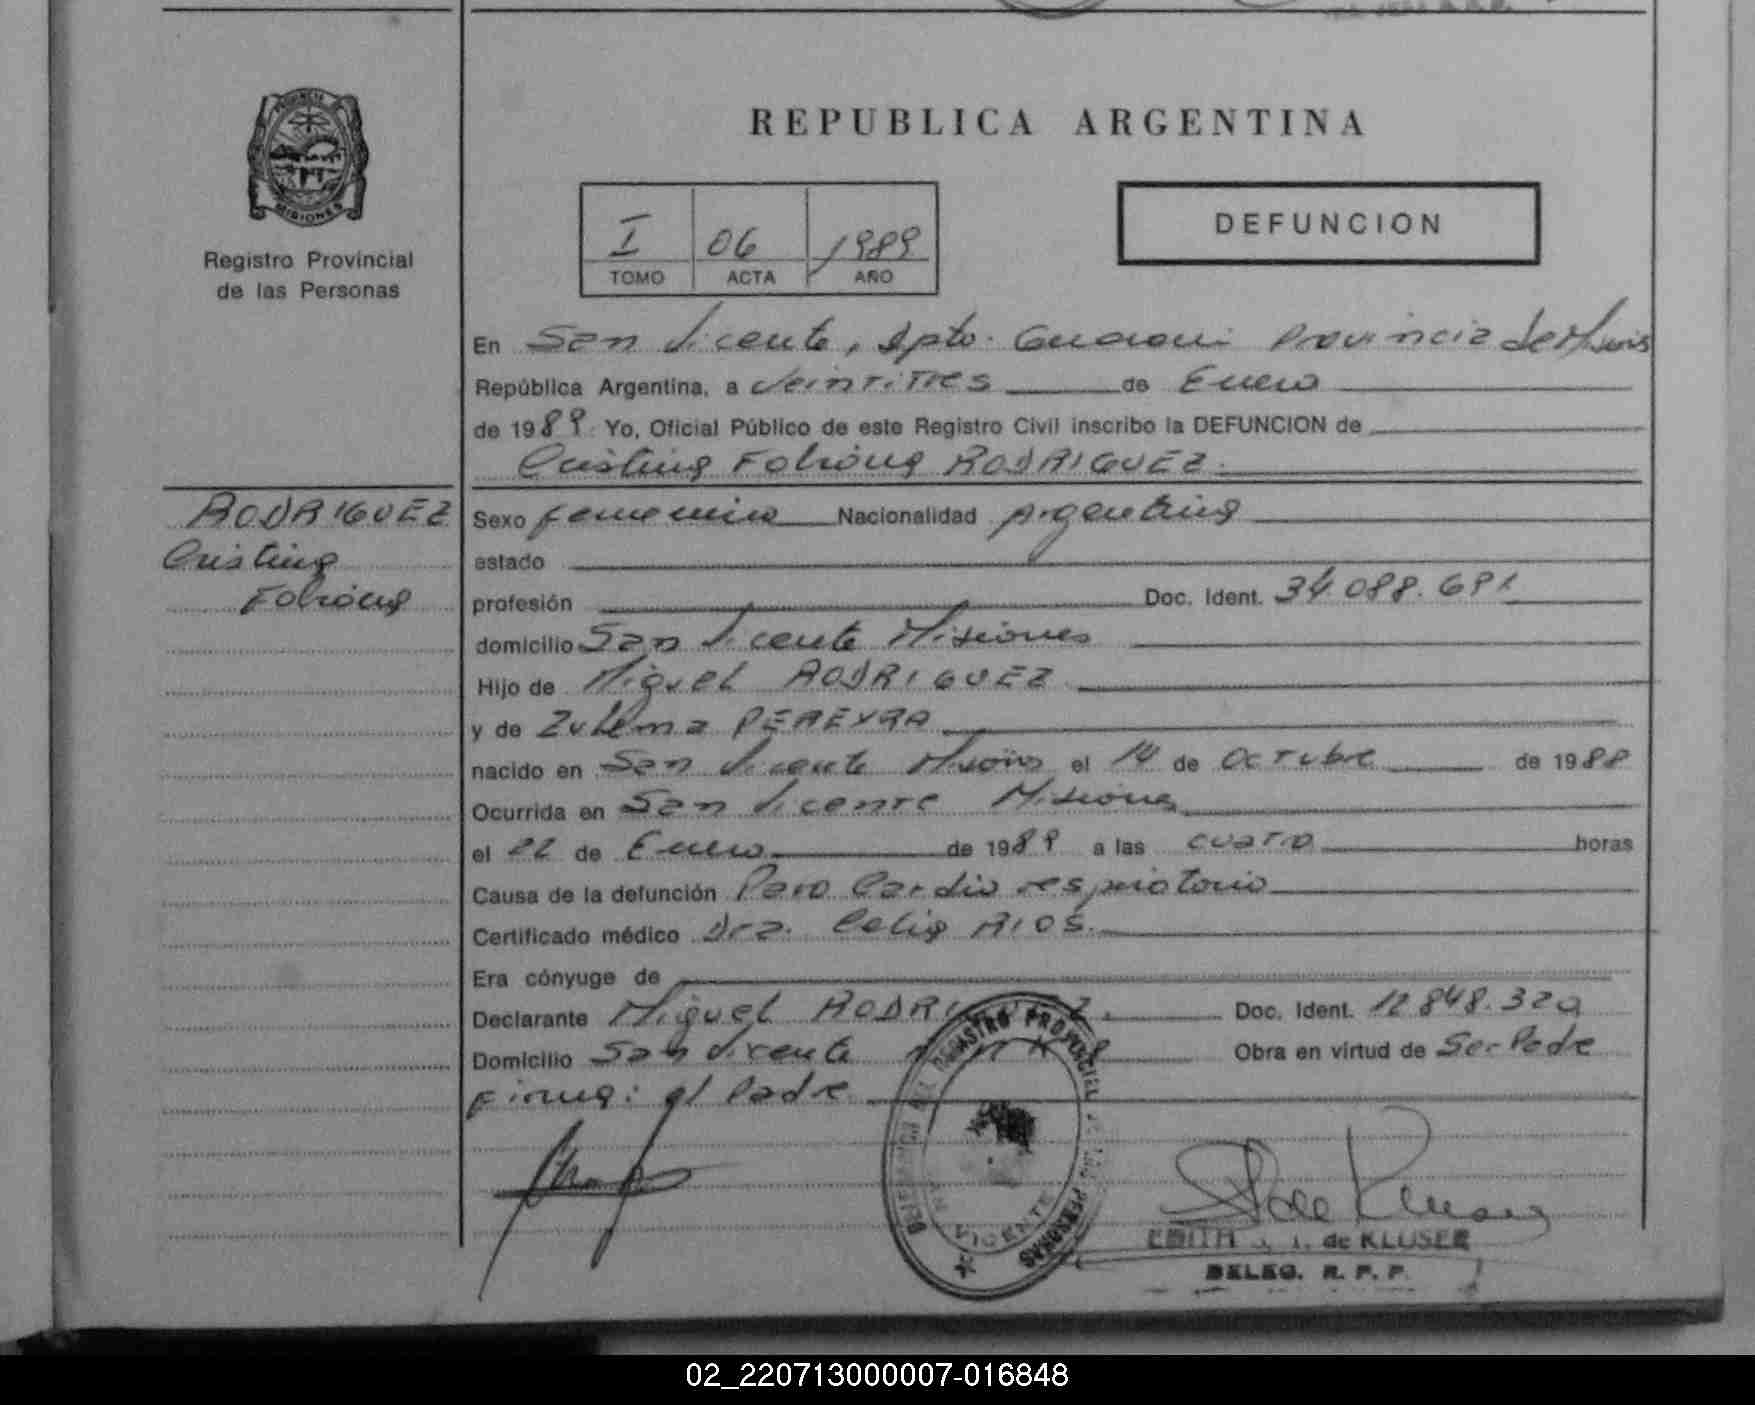 PROVINCIA DE
MISIONES
Registro Provincial
de las Personas
REPUBLICA ARGENTINA
I 06 1989
TOMO ACTA AÑO
DEFUNCION
En San Vicente, Dpto. Guarani Provincia de Misis
República Argentina, a Veintitres de Enero
de 1989. Yo, Oficial Público de este Registro Civil inscribo la DEFUNCION de
Cristina Fabiana RODRIGUEZ.
RODRIGUEZ
Cristina
Fabiana
Sexo femenino Nacionalidad Argentina
estado
profesión Doc. Ident. 34.088.691
domicilio San Vicente Misiones
Hijo de Miguel RODRIGUEZ
y de Zulema PEREYRA
nacido en San Vicente el 14 de Octubre de 1988
Ocurrida en San Vicente Misiones
el 22 de Enero de 1989 a las cuatro horas
Causa de la defunción Paro Cardio respiratorio
Certificado médico Dra. Celia RIOS.
Era cónyuge de
Declarante Miguel RODRIGUEZ. Doc. Ident. 12.848.320
Domicilio San Vicente Obra en virtud de Ser Padre
Firma: el Padre
REGISTRO PROVINCIAL DE LAS PERSONAS
SAN VICENTE
EDITH de KLUSER
DELEG. R. P. P.
02_220713000007-016848